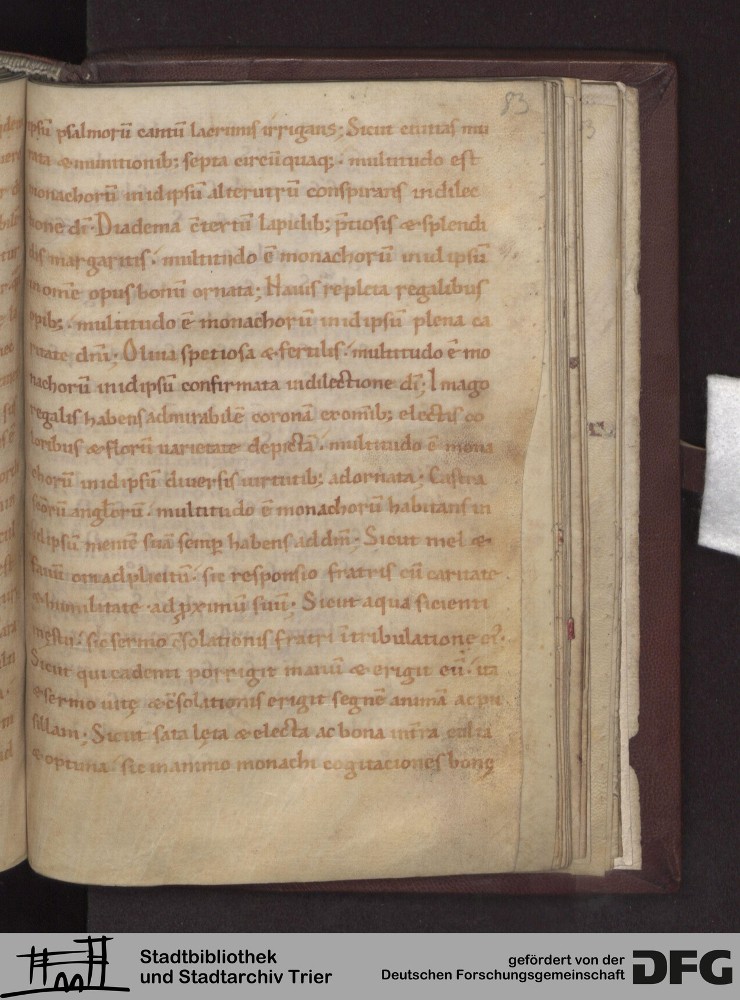 83
ipsū psalmorū cantū lacrimis irrigans; Sicut ciuitas mu
rata & munitionib; septa circūquaq; · multitudo est
monachorū inidipsū alterutrū conspirans indilec
tione dī · Diadema c̄textū lapidib; p̄tiosis & splendi
dis margaritis · multitudo ē monachorū inidipsū
in om̄e opus bonū ornata; Nauis repleta regalibus
opib; · multitudo ē monachorū inidipsū plena ca
ritate dn̄i; Oliua spetiosa & fertilis · multitudo ē mo
nachorū inidipsū confirmata indilectione dī; Imago
regalis habens admirabilē coronā exom̄ib; electis co
loribus & florū uarietate depictā · multitudo ē mona
chorū inidipsū diuersis uirtutib; adornata; Castra
sc̄orū angl̄orū · multitudo ē monachorū habitans in
idipsū mentē suā semp̄ habens ad dn̄m; Sicut mel &
fauū · sic responsio fratris cū caritate
& humilitate · ad p̄ximū suū; Sicut aqua sicienti
inęstu · sic sermo c̄solationis fratri ītribulatione
Sicut qui cadenti porrigit manū & erigit eū · ita
& sermo uitę & c̄solationis erigit segnē animā ac pu
sillam; Sicut sata lęta & electa ac bona intra culta
& optima · sic inanimo monachi cogitaciones bonę
3
Stadtbibliothek
und Stadtarchiv Trier
gefördert von der
Deutschen Forschungsgemeinschaft
DFG